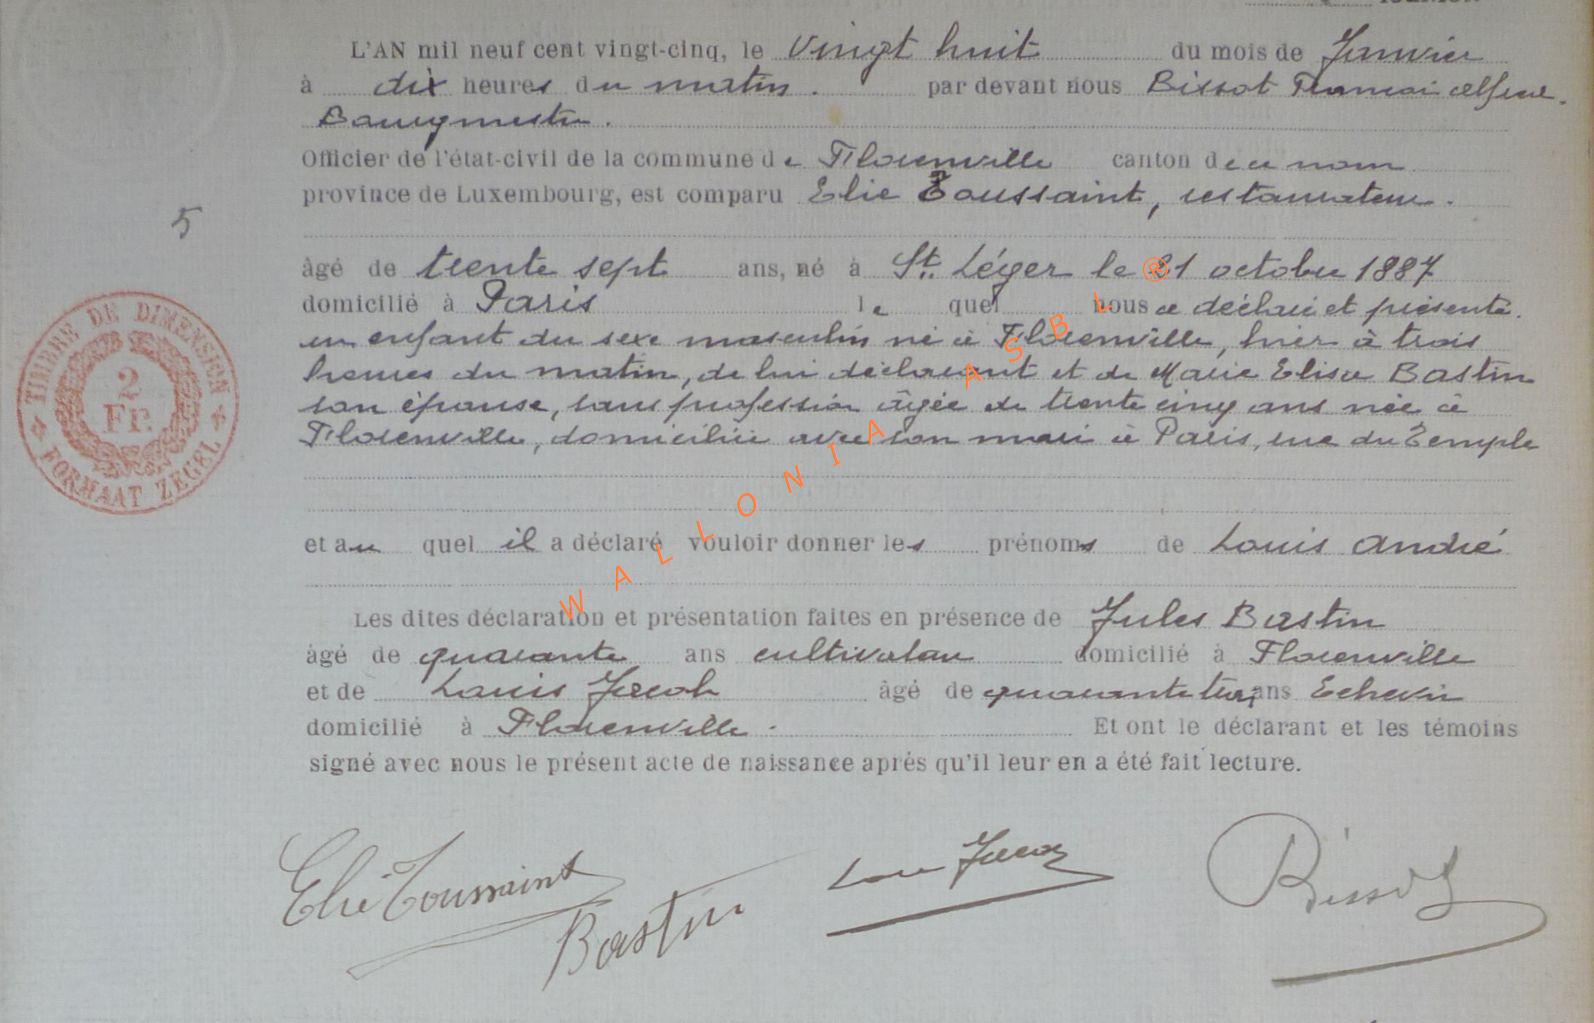 L'AN mil neuf cent vingt-cinq, le vingt huit du mois de Janvier
à dix heures du matin. par devant nous Bissot François Alfred.
Bourgmestre.
Officier de l'état-civil de la commune de Florenville canton de ce nom
province de Luxembourg, est comparu Elie Toussaint, restaurateur.
5
âgé de trente sept ans, né à St. Léger le 31 octobre 1887
domicilié à Paris lequel nous a déclaré et présenté
un enfant du sexe masculin né à Florenville, hier à trois
heures du matin, de lui déclarant et de Marie Elisa Bastin
son épouse, sans profession âgée de trente cinq ans née à
Florenville, domiciliée avec son mari à Paris, rue du Temple
TIMBRE DE DIMENSION
2
Fr.
FORMAAT ZEGEL
et au quel il a déclaré vouloir donner les prénoms de Louis André
Les dites déclaration et présentation faites en présence de Jules Bastin
âgé de quarante ans cultivateur domicilié à Florenville
et de Louis Jacob âgé de quarante trois ans Echevin
domicilié à Florenville. Et ont le déclarant et les témoins
signé avec nous le présent acte de naissance après qu'il leur en a été fait lecture.
WALLONIA ASBL ®
Elie Toussaint
Bastin
Louis Jacob
Bissot